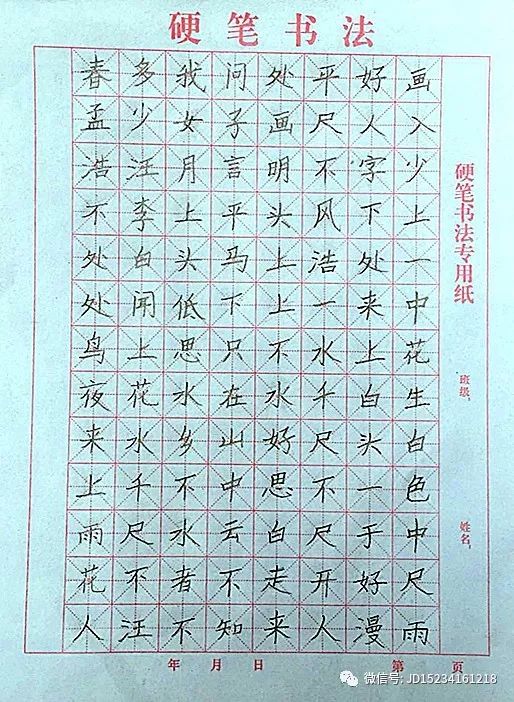 硬笔书法
春孟浩不处处鸟夜来上雨花人
多少汪李白闻上花水千尺不汪
我女月上头低思水乡不水者不
问子言平马下只在山中云不知
处画明头上上不水好思白走来
平尺不风浩一水千尺不尺开人
好人字下处来上白头一于好漫
画入少上一中花生白色中尺雨
硬笔书法专用纸
班级:
姓名:
年 月 日
第 页
微信号: JD15234161218